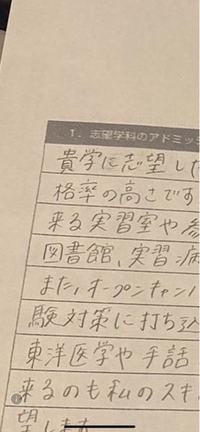 1. 志望学科のアドミッシ
貴学に志望した
格率の高さです
来る実習室や参
図書館、実習病
また、オープンキャンパ
験対策に打ち込
東洋医学や手話
来るのも私のスキ
望します